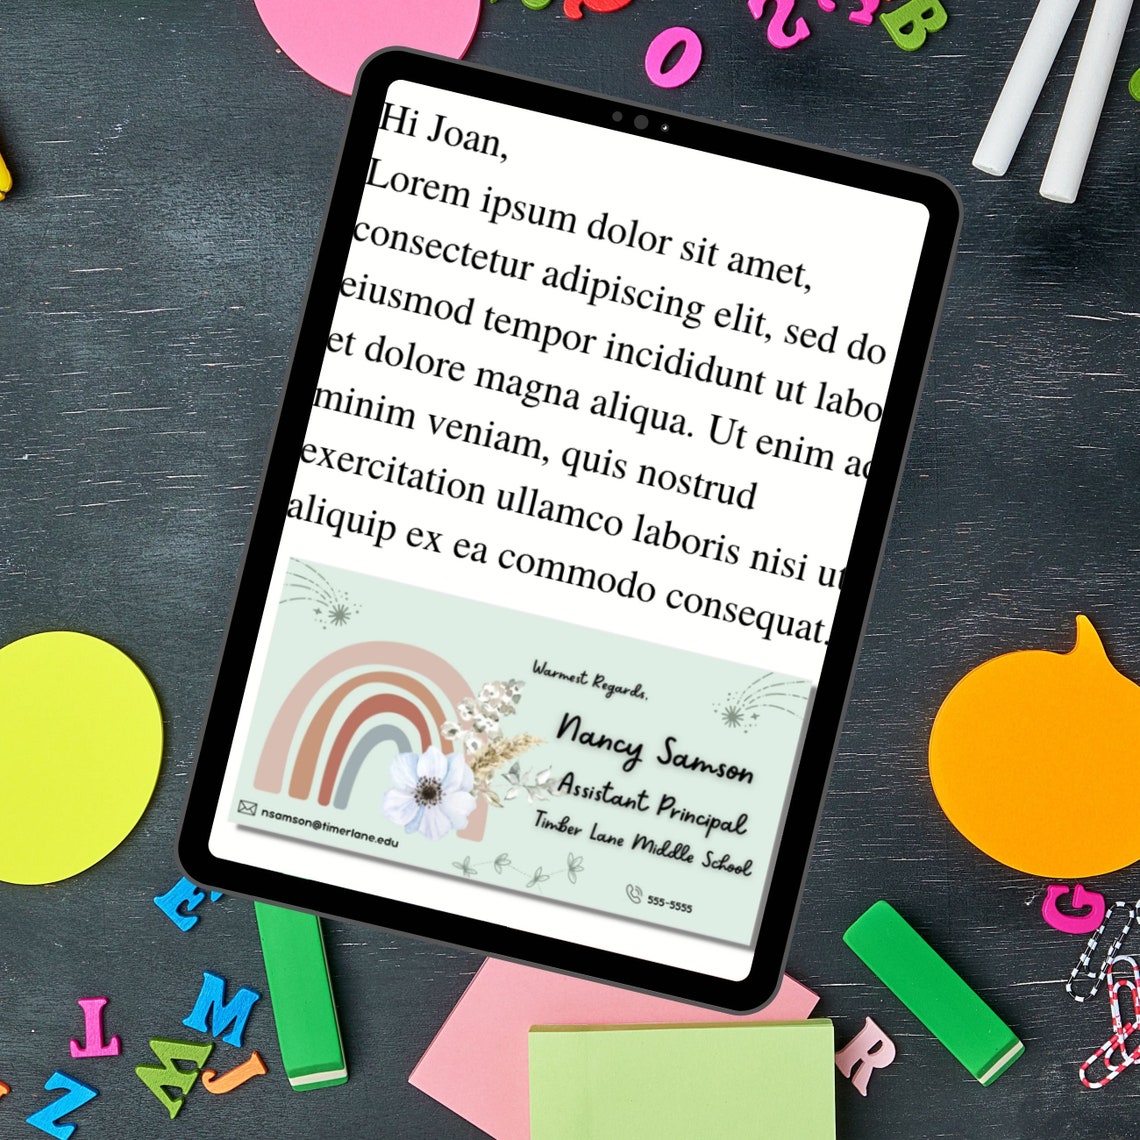 Hi Joan,
Lorem ipsum dolor sit amet,
consectetur adipiscing elit, sed do
eiusmod tempor incididunt ut labo
et dolore magna aliqua. Ut enim ad
minim veniam, quis nostrud
exercitation ullamco laboris nisi ut
aliquip ex ea commodo consequat.
Warmest Regards,
Nancy Samson
Assistant Principal
Timber Lane Middle School
nsamson@timerlane.edu
555-5555